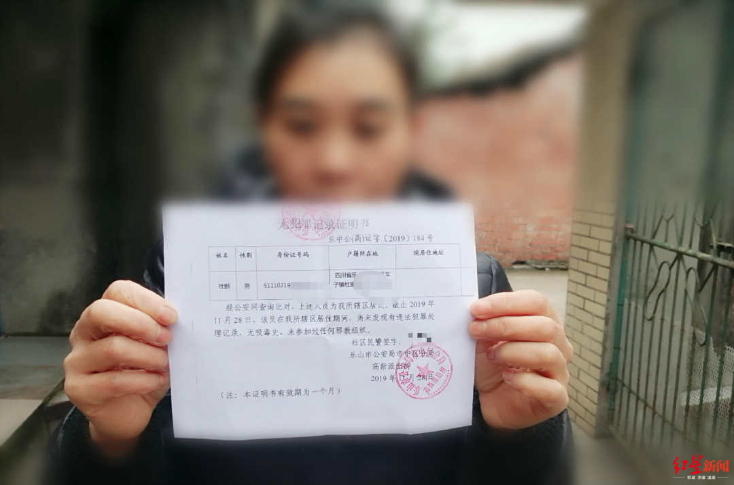 无犯罪记录证明书
乐中公(高)证字〔2019〕184号
姓名 性别 身份证号码 户籍所在地 现居住地址
男 51110219 四川省乐
子镇红
经公安网查询比对,上述人员为我所辖区居民,截止2019年
11月28日,该员在我所辖区居住期间,尚未发现有违法犯罪处
理记录、无吸毒史、未参加过任何邪教组织。
社区民警签字:
乐山市公安局市中区分局
派出所
2019年11月28日
(注:本证明书有效期为一个月)
红星新闻